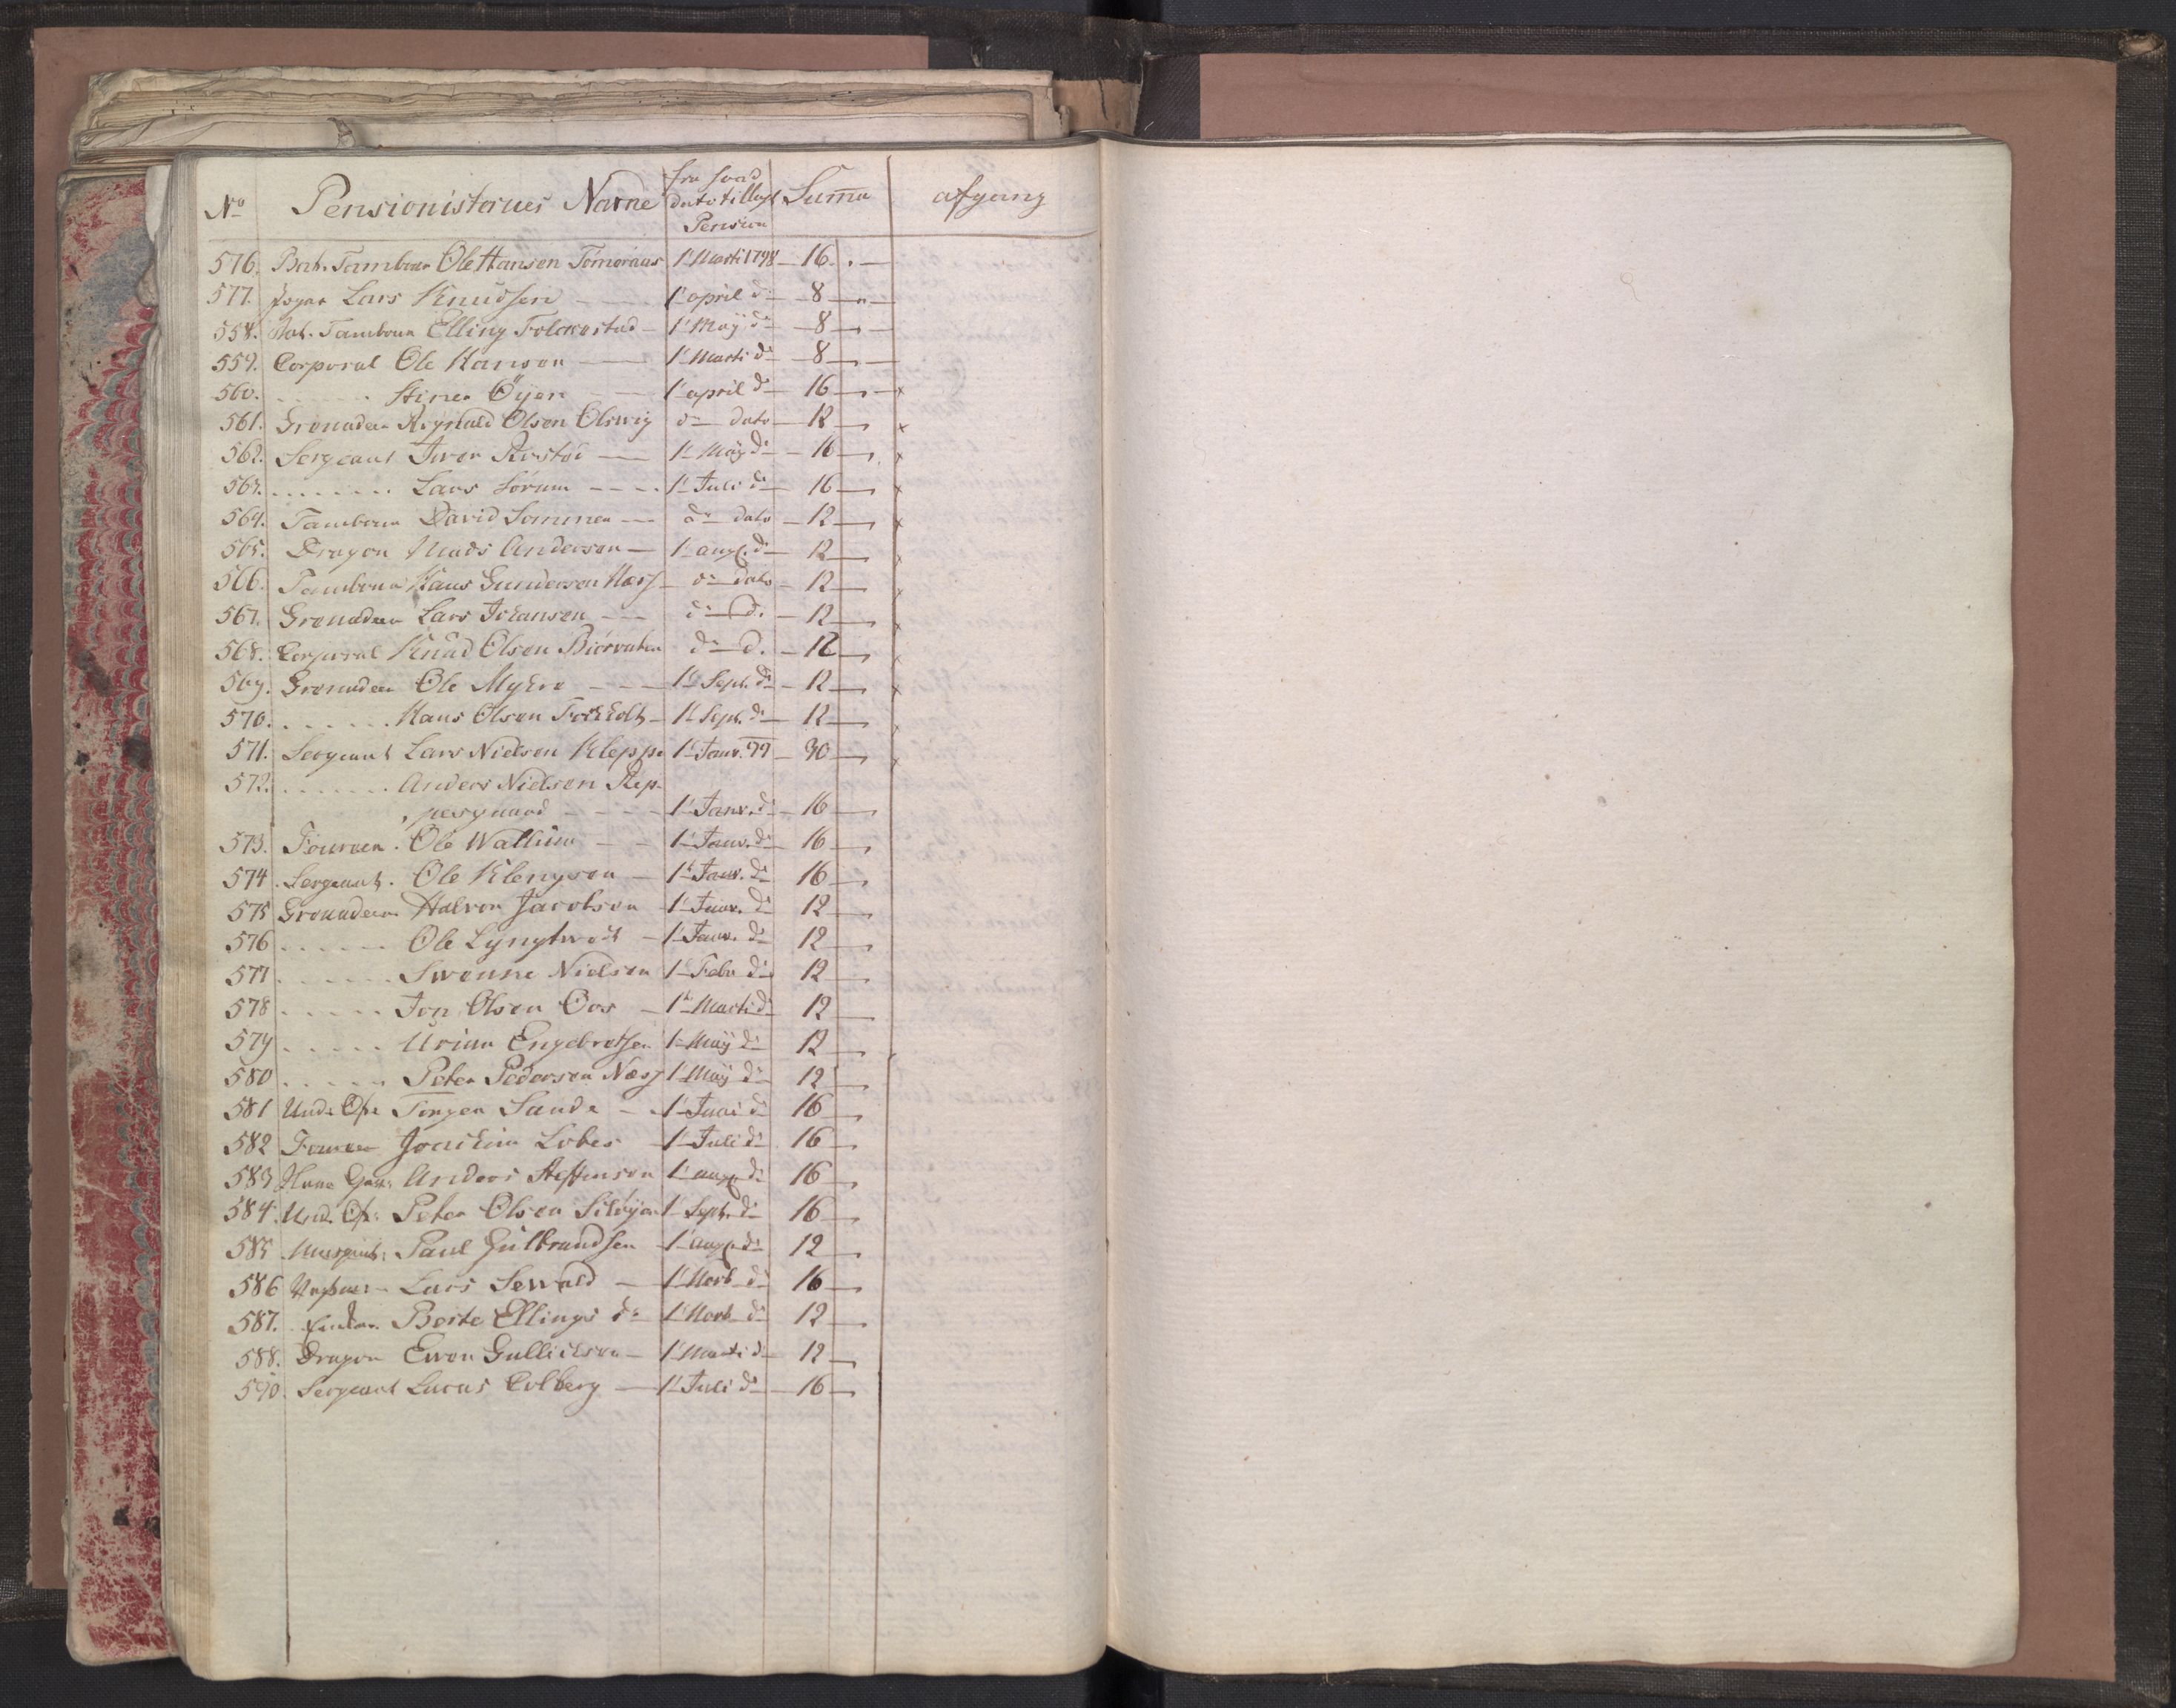 No Pensionisternes Navne fra hvad dato tillagt Pension Suma afgang
576. Bat. Tambour Ole Hansen Tømeraas 1t Marti 1798 – 16. . –
577. Jeger Lars Knudsen – 1t april do – 8 – " –
558. Bat. Tambour Elling Folckestad – 1t Maÿ do – 8 –
559. Corporal Ole Hansen – 1t Marti do – 8 –
560. . . . . . Stiner Öÿen 1t april do – 16 – x
561. Grenadeer Reynald Olsen Olswig do dato – 12 – x
562. Sergeant Iver Rustad – 1t Maÿ do – 16 – x
563. . . . . . . . Lars Sørum – – – 1t Juli do – 16 – x
564. Tambour David Sommer – – do dato – 12 – x
565. Dragon Mads Andersen – 1t augl. do – 12 – x
566. Tambour Hans Gundersen Næss – do dato – 12 – x
567. Grenadeer Lars Johansen – – do d. – 12 – x
568. Corporal Knud Olsen Biørvaten do d. – 12 – x
569. Grenadeer Ole Myhre – – – 1t Sept. do – 12 – x
570. . . . . . . Hans Olsen Forkholt – 1t Sept. do – 12 –
571. Sergeant Lars Nielsen Kleppe 1t Janv. 99 – 30 – x
572. . . . . . . . Anders Nielsen Rep-
pesgaard – – – 1t Janv. do – 16 –
573. Foureer. Ole Wallum – – 1t Janv. do – 16 –
574. Sergeant. Ole Klengsen – 1t Janv. do 16 –
575 Grenadeer Halvor Jacobsen 1t Janv. do 12 –
576 . . . . . . Ole Lyngtwedt – 1t Janv. do 12 –
577 . . . . . . Swenne Nielsen 1t Febr do 12 –
578 . . . . . Jon Olsen Oos – 1t Marti do 12 –
579 . . . . . Urian Engebretsen 1t Maÿ do 12 –
580 . . . . . Peter Pedersen Næss 1t Maÿ do 12 –
581 Und: Ofc Jørgen Sande – 1t Juni do 16 –
582 Foureer Joachim Lobes 1t Juli do 16 –
583 Anders Steffensen 1t augl. do 16 –
584. Und. Of: Peter Olsen Siløÿen 1t Sept. do 16 –
585 Paul Gulbrandsen 1t augl. do 12 –
586 Lars Sewald – 1t Novb do 16 –
587. Enken Berte Ellings do 1t Novb do 12 –
588. Dragon Ewen Gullichsen – 1t Marti do 12 –
590. Sergeant Lucas Colberg – 1t Juli do – 16 –